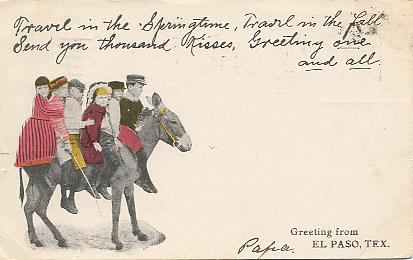 Travel in the Springtime, Travel in the Fall
Send you thousand Kisses, Greeting one
and all.
Greeting from
EL PASO, TEX.
Papa.